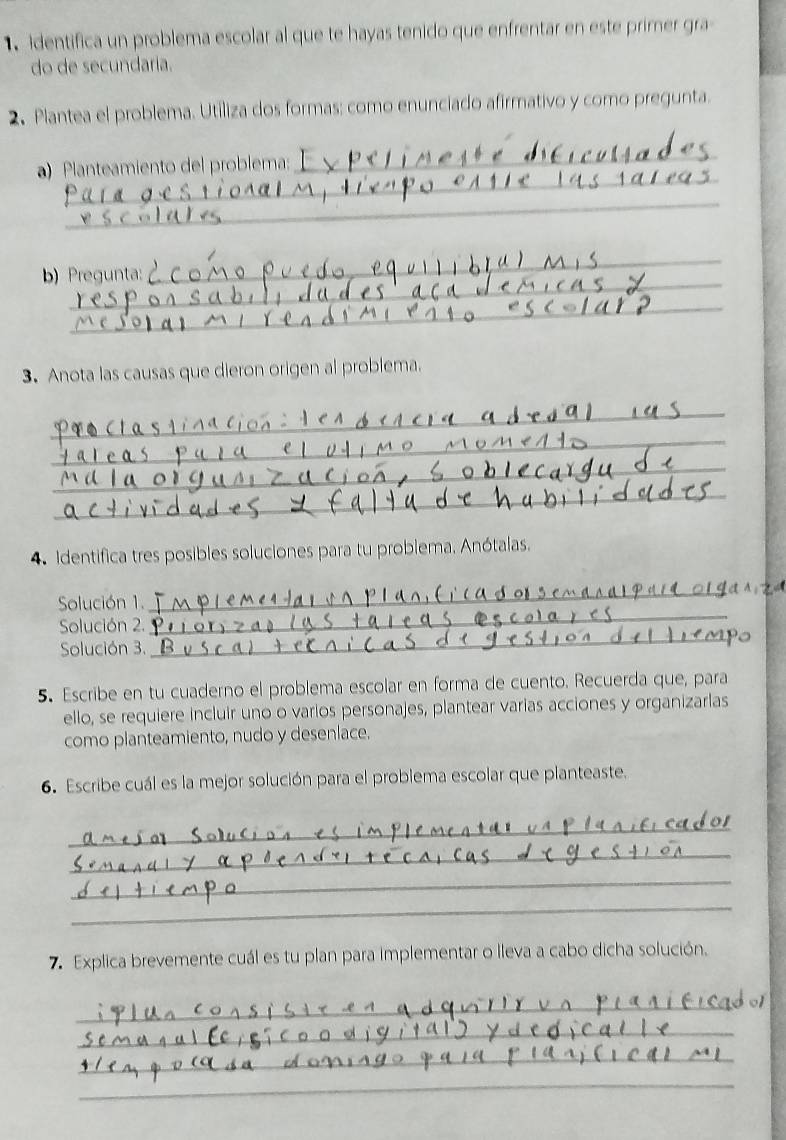 1. Identifica un problema escolar al que te hayas tenido que enfrentar en este primer gra-
do de secundaria.
2. Plantea el problema. Utiliza dos formas: como enunciado afirmativo y como pregunta.
a) Planteamiento del problema: Experimente dificultades
para gestionar mi tiempo entre las tareas
escolares
b) Pregunta: ¿como puedo equilibrar mis
responsabilidades academicas y
mejorar mi rendimiento escolar?
3. Anota las causas que dieron origen al problema.
procrastinación: tendencia a dejar las
tareas para el utimo momento
mala organización, sobrecarga de
actividades y falta de habilidades
4. Identifica tres posibles soluciones para tu problema. Anótalas.
Solución 1. Implementar un planificador semanal para organiza
Solución 2. Priorizar las tareas escolares
Solución 3. Buscar tecnicas de gestion del tiempo
5. Escribe en tu cuaderno el problema escolar en forma de cuento. Recuerda que, para
ello, se requiere incluir uno o varios personajes, plantear varias acciones y organizarlas
como planteamiento, nudo y desenlace.
6. Escribe cuál es la mejor solución para el problema escolar que planteaste.
amejor solucion es implementar un planificador
semanal y aprender técnicas de gestión
del tiempo
7. Explica brevemente cuál es tu plan para implementar o lleva a cabo dicha solución.
iplan consiste en adquirir un planificador
semanal (fisico o digital) y dedicarle
tiempo cada domingo para planificar mi